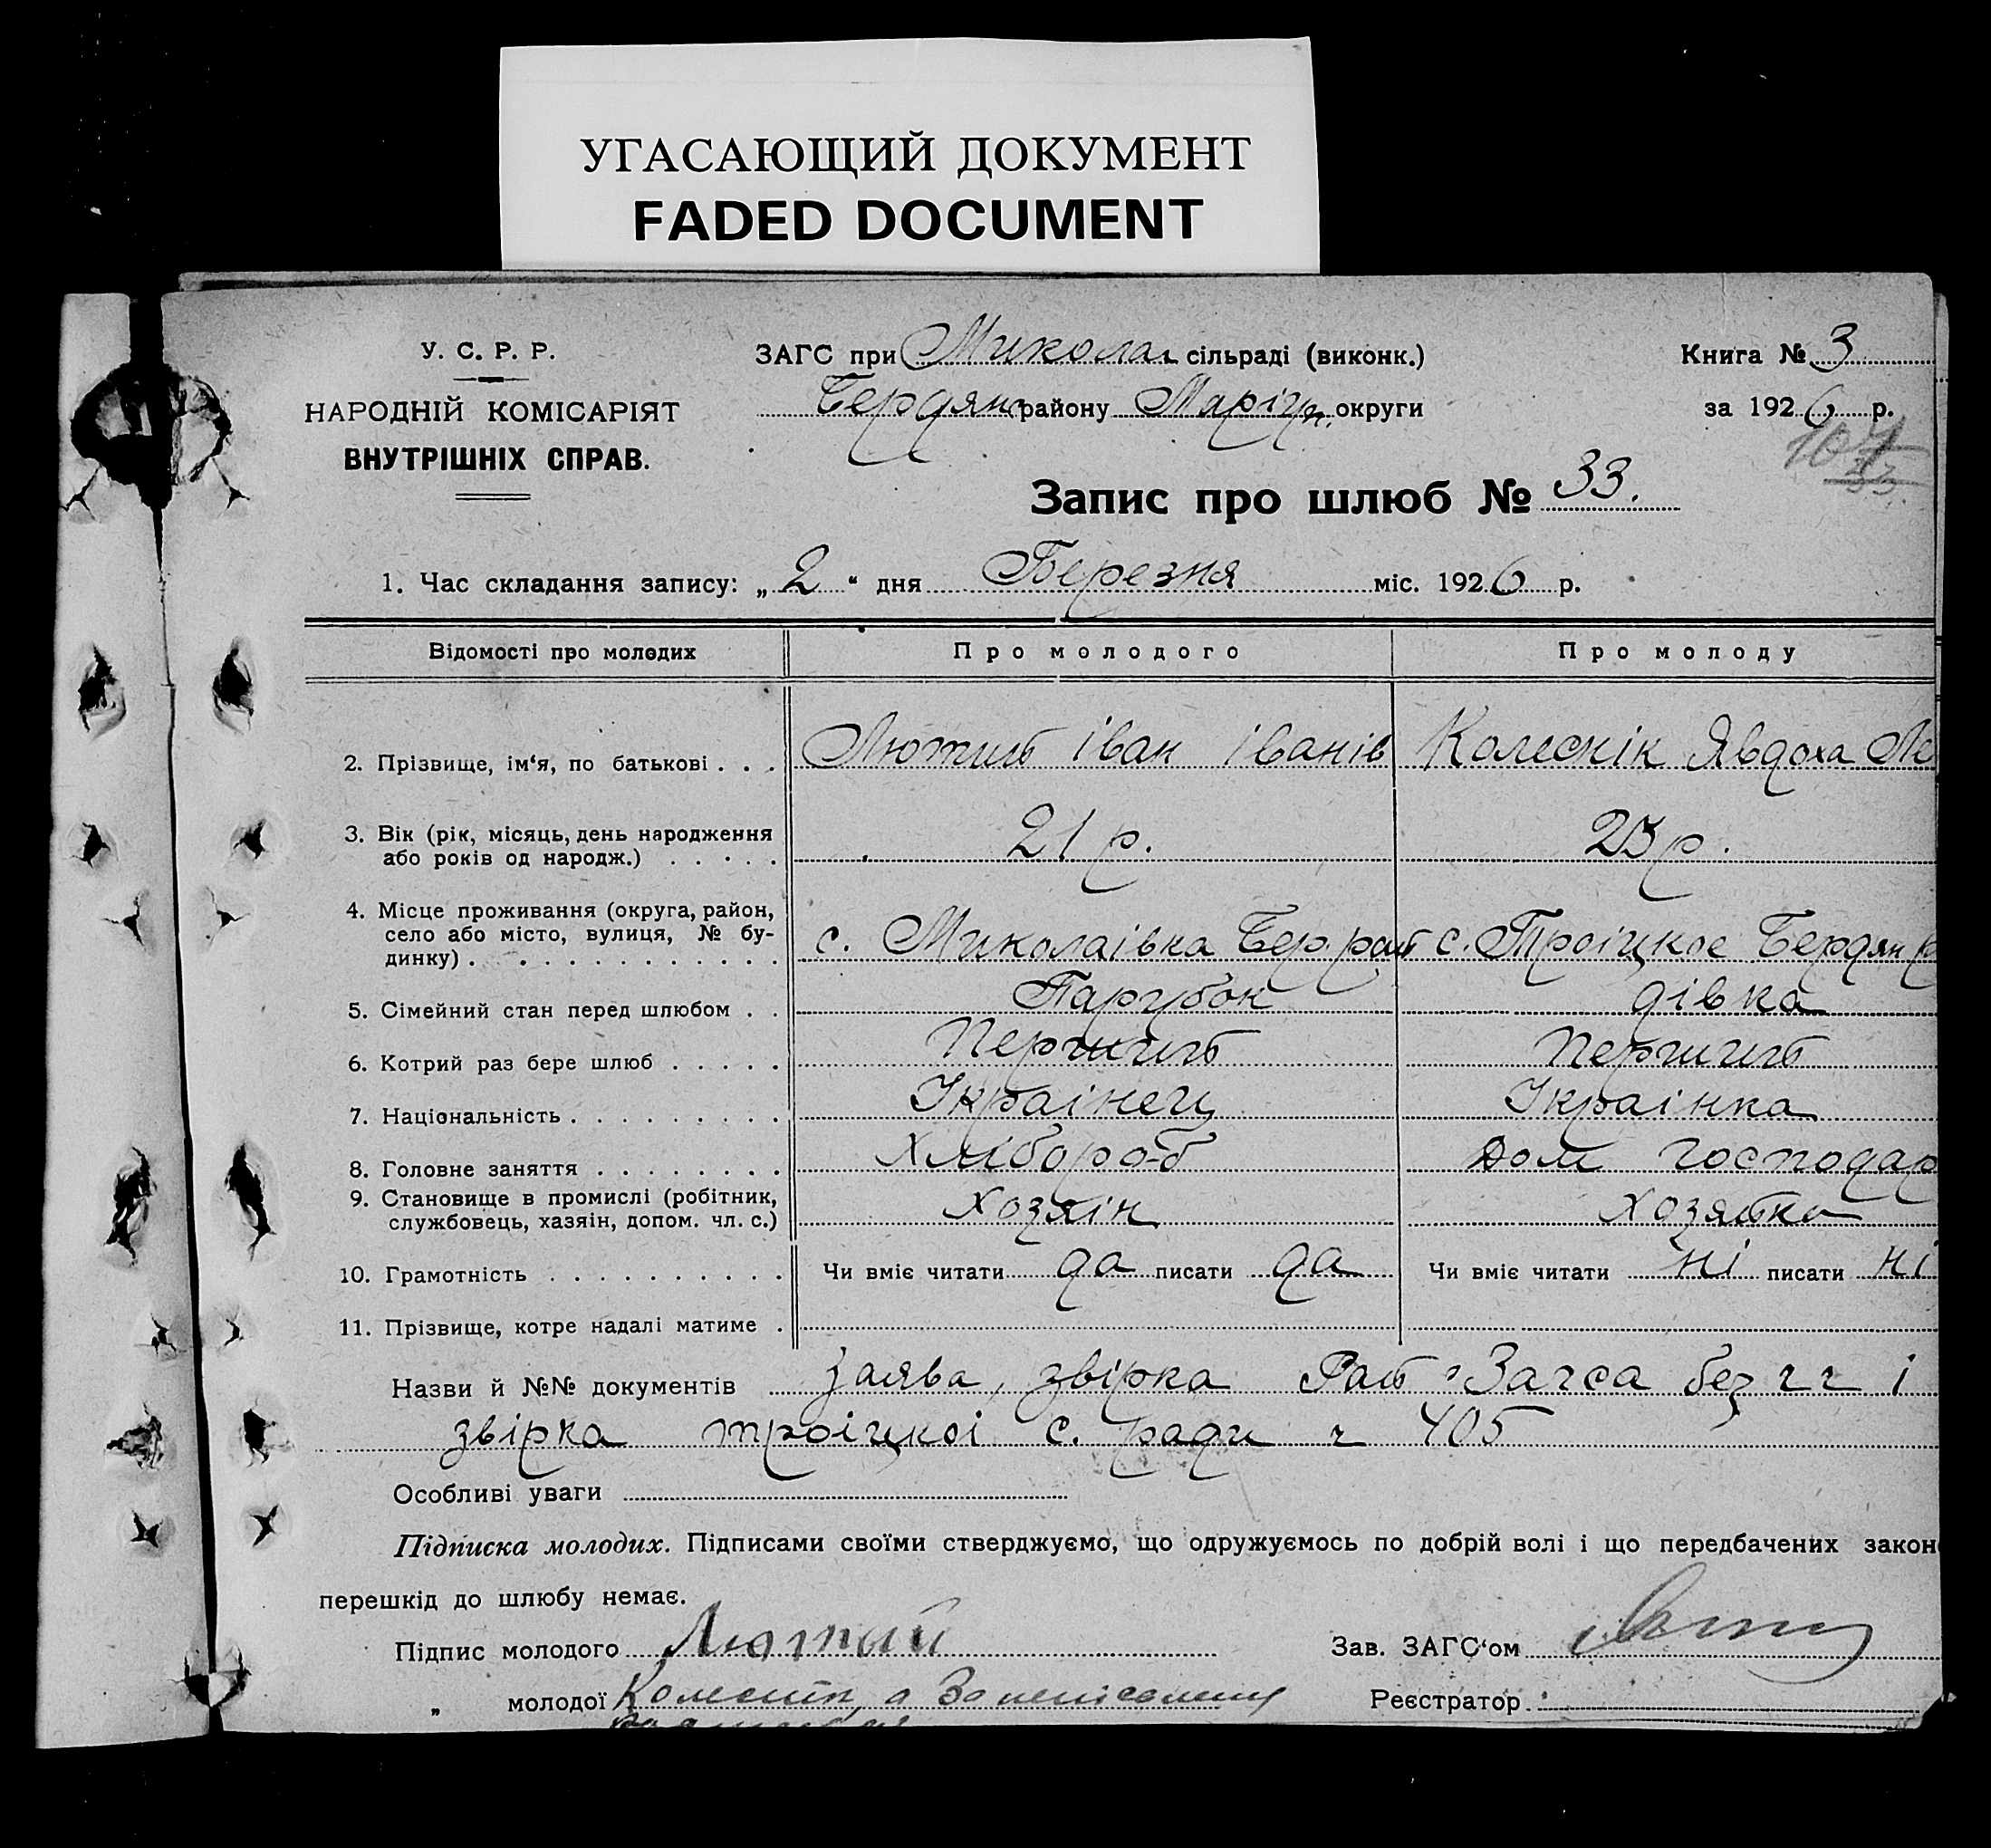 УГАСАЮЩИЙ ДОКУМЕНТ
FADED DOCUMENT
У. С. Р. Р.
НАРОДНІЙ КОМІСАРІЯТ
ВНУТРІШНІХ СПРАВ.
ЗАГС при Микола сільраді (виконк.)
Бердянс району Маріуп. округи
Книга № 3
за 1926 р.
Запис про шлюб № 33.
1. Час складання запису: „2“ дня Березня міс. 1926 р.
Відомості про молодих Про молодого Про молоду
2. Прізвище, ім'я, по батькові . . . Лютий Іван Іванів Колеснік Явдоха
3. Вік (рік, місяць, день народження
або років од народж.) . . . . . 21 р. 25 р.
4. Місце проживання (округа, район,
село або місто, вулиця, № бу-
динку) . . . . . . . . . . . . с. Миколаівка Бер. рай с. Троіцкое Бердян р
5. Сімейний стан перед шлюбом . . Парубок дівка
6. Котрий раз бере шлюб . . . . . Перший Перший
7. Національність . . . . . . . . . Украінец Украінка
8. Головне заняття . . . . . . . . Хлібороб Дом господар
9. Становище в промислі (робітник,
службовець, хазяін, допом. чл. с.) Хозяін Хозяйка
10. Грамотність . . . . . . . . . . Чи вміє читати да писати да Чи вміє читати ні писати ні
11. Прізвище, котре надалі матиме .
Назви й №№ документів заява, звірка Рай Загса без чч і
звірка троіцкоі с. ради ч 405
Особливі уваги
Підписка молодих. Підписами своїми стверджуємо, що одружуємось по добрій волі і що передбачених закон
перешкід до шлюбу немає.
Підпис молодого Лютый Зав. ЗАГС'ом
„ молодої а Реєстратор